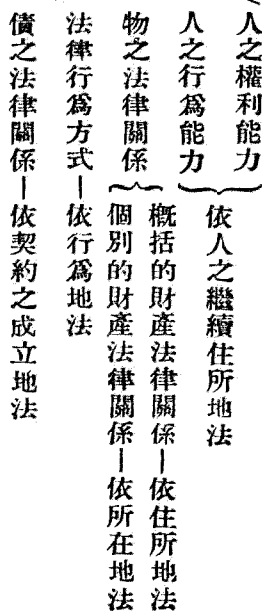 人之權利能力
人之行爲能力
依人之繼續住所地法
物之法律關係
槪括的財產法律關係—依住所地法
個別的財產法律關係—依所在地法
法律行爲方式—依行爲地法
債之法律關係—依契約之成立地法